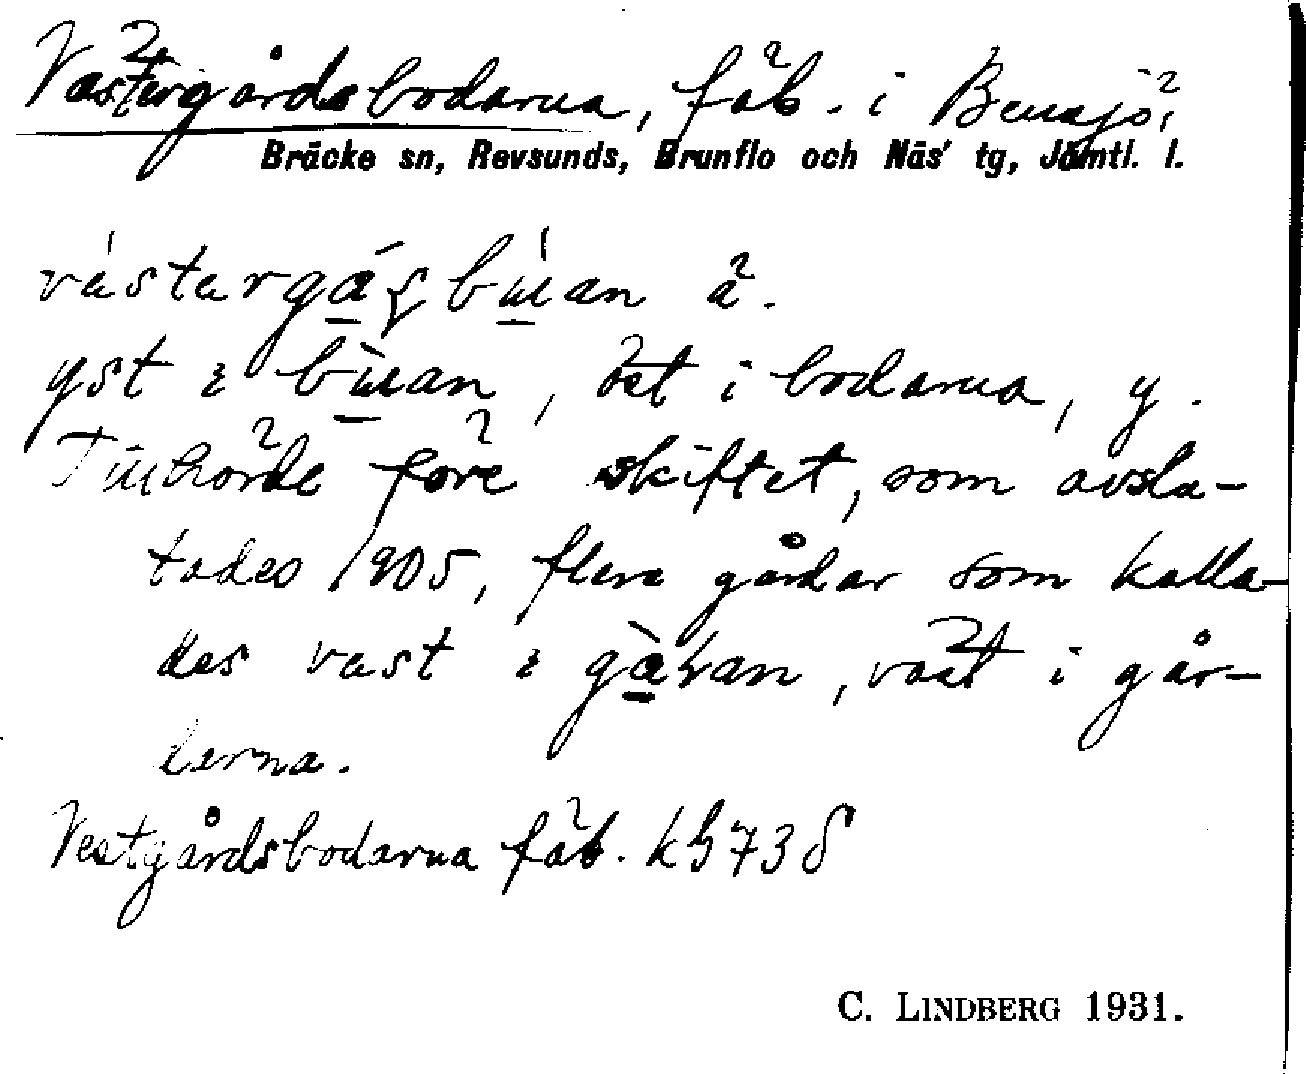 Västergårdsbodarna, fäb. i Bensjö,
Bräcke sn, Revsunds, Brunflo och Näs' tg, Jämtl. l.
yst i bùan, öst i bodarna, y.
Tillhörde före skiftet, som avslu-
tades 1905, flera gårdar som kalla-
des vast i gàran, väst i går-
darna.
Vestgårdsbodarna fäb. kb 73 8
C. LINDBERG 1931.